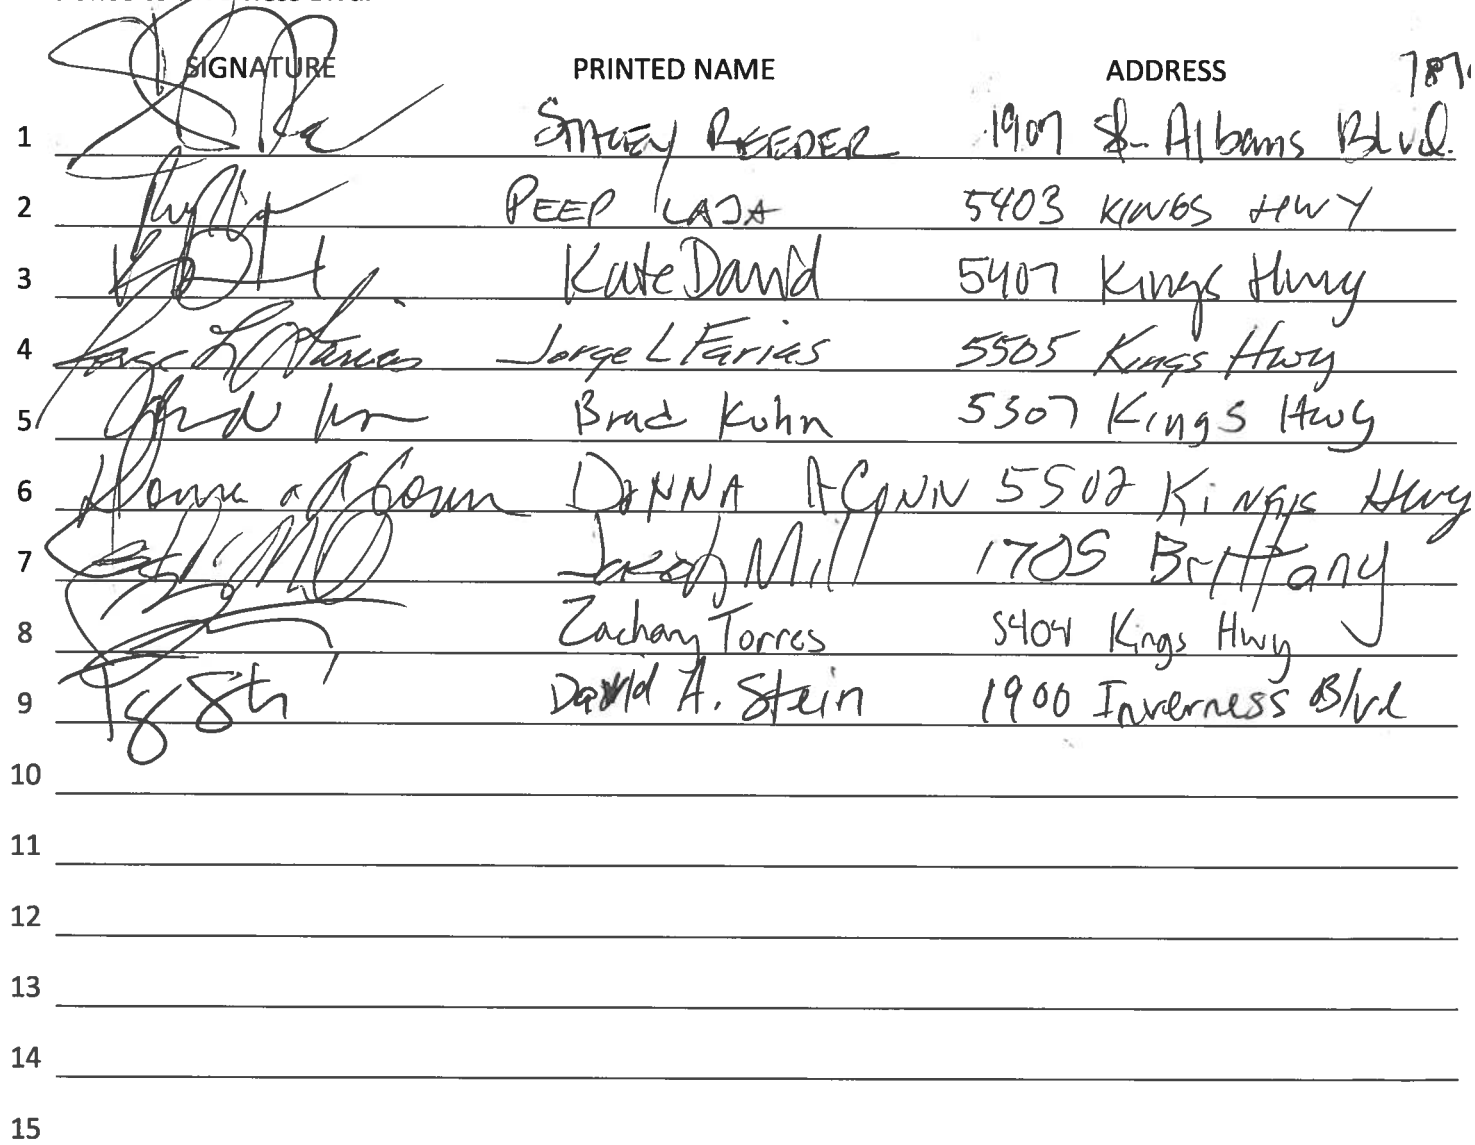 SIGNATURE PRINTED NAME ADDRESS
1 STACEY REEDER 1907 St. Albans Blvd.
2 PEEP LAJA 5403 KINGS HWY
3 Kate David 5407 Kings Hwy
4 Jorge L Farias Jorge L Farias 5505 Kings Hwy
5 Brad Kuhn 5307 Kings Hwy
6 Donna A Conn DONNA A CONN 5502 Kings Hwy
7 Mill 1705 Brittany
8 Zachary Torres 5404 Kings Hwy
9 David A. Stein 1900 Inverness Blvd
10
11
12
13
14
15